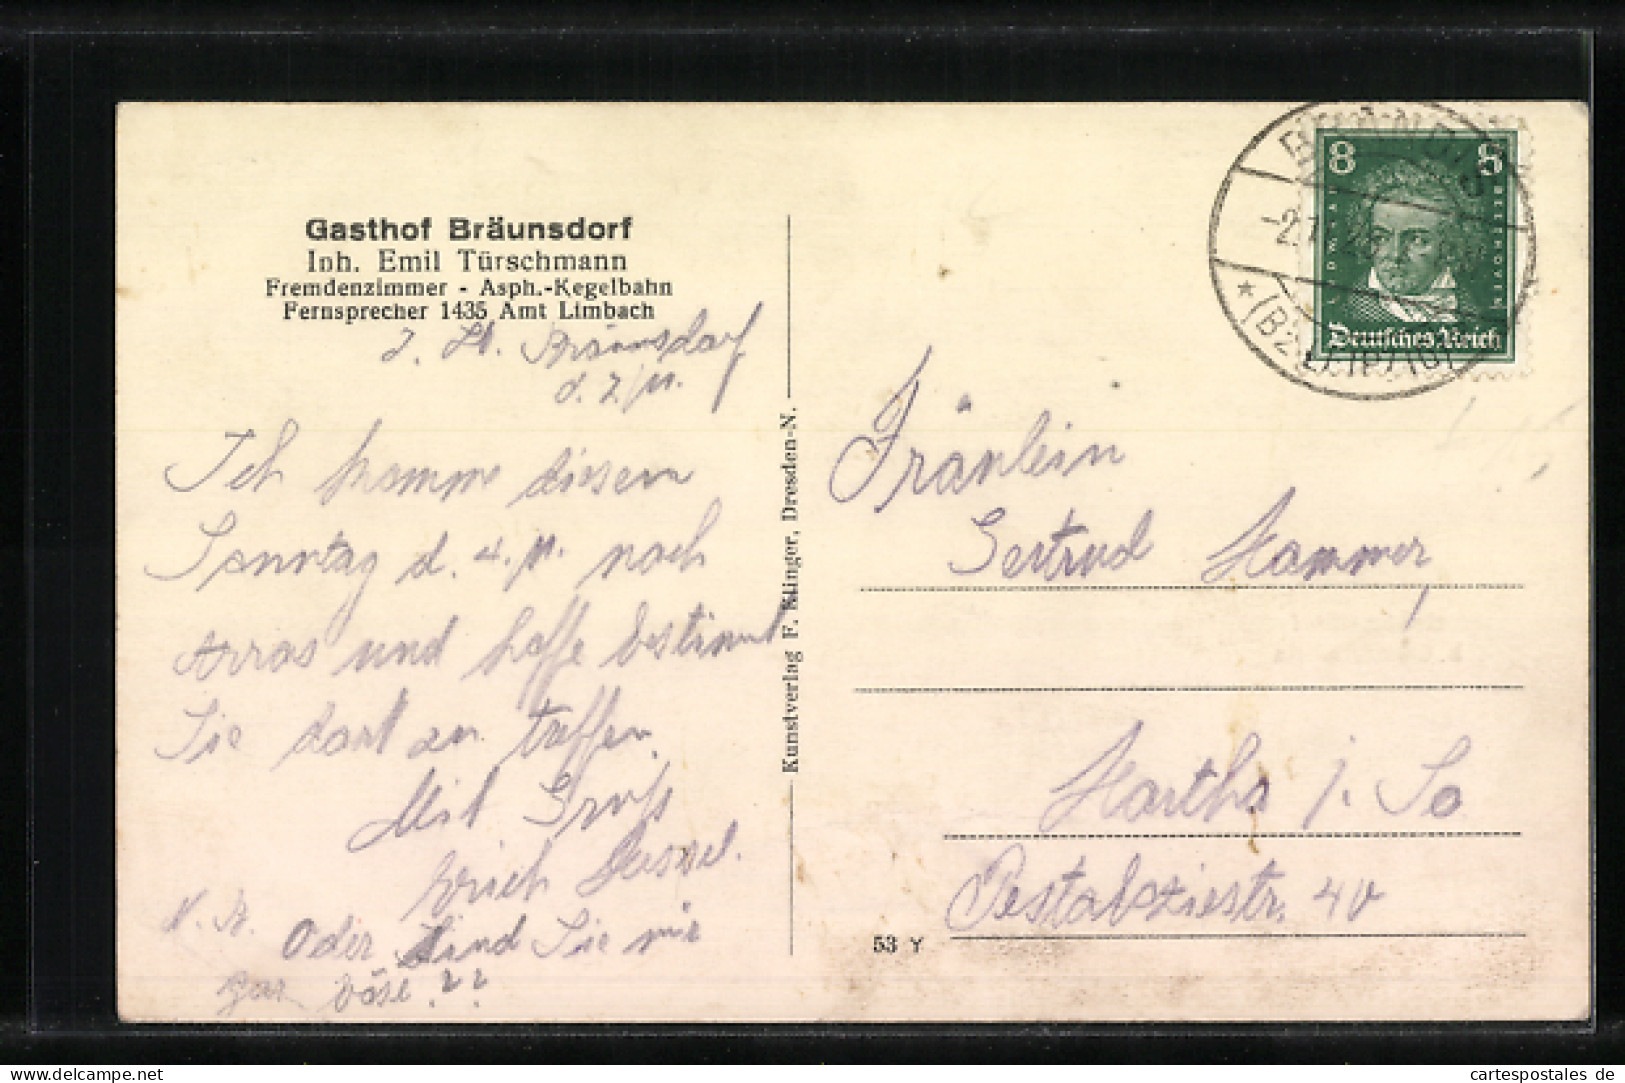 Gasthof Bräunsdorf
Inh. Emil Türschmann
Fremdenzimmer - Asph.-Kegelbahn
Fernsprecher 1435 Amt Limbach
z. Zt. Bräunsdorf
Ich komme diesen
Sonntag d. 4. M. nach
Arras und hoffe bestimmt
Sie dort zu treffen.
Mit Gruß
Erich
N. B. Oder sind Sie mir
gar böse??
Kunstverlag F. Klinger, Dresden-N.
8 8
LUDWIG VAN BEETHOVEN
Deutsches Reich
(BZ. LEIPZIG)
Fräulein
Gertrud Hammer,
Hartha i. Sa
Pestalozziestr. 40
53 Y
cartespostales de
www.delcampe.net